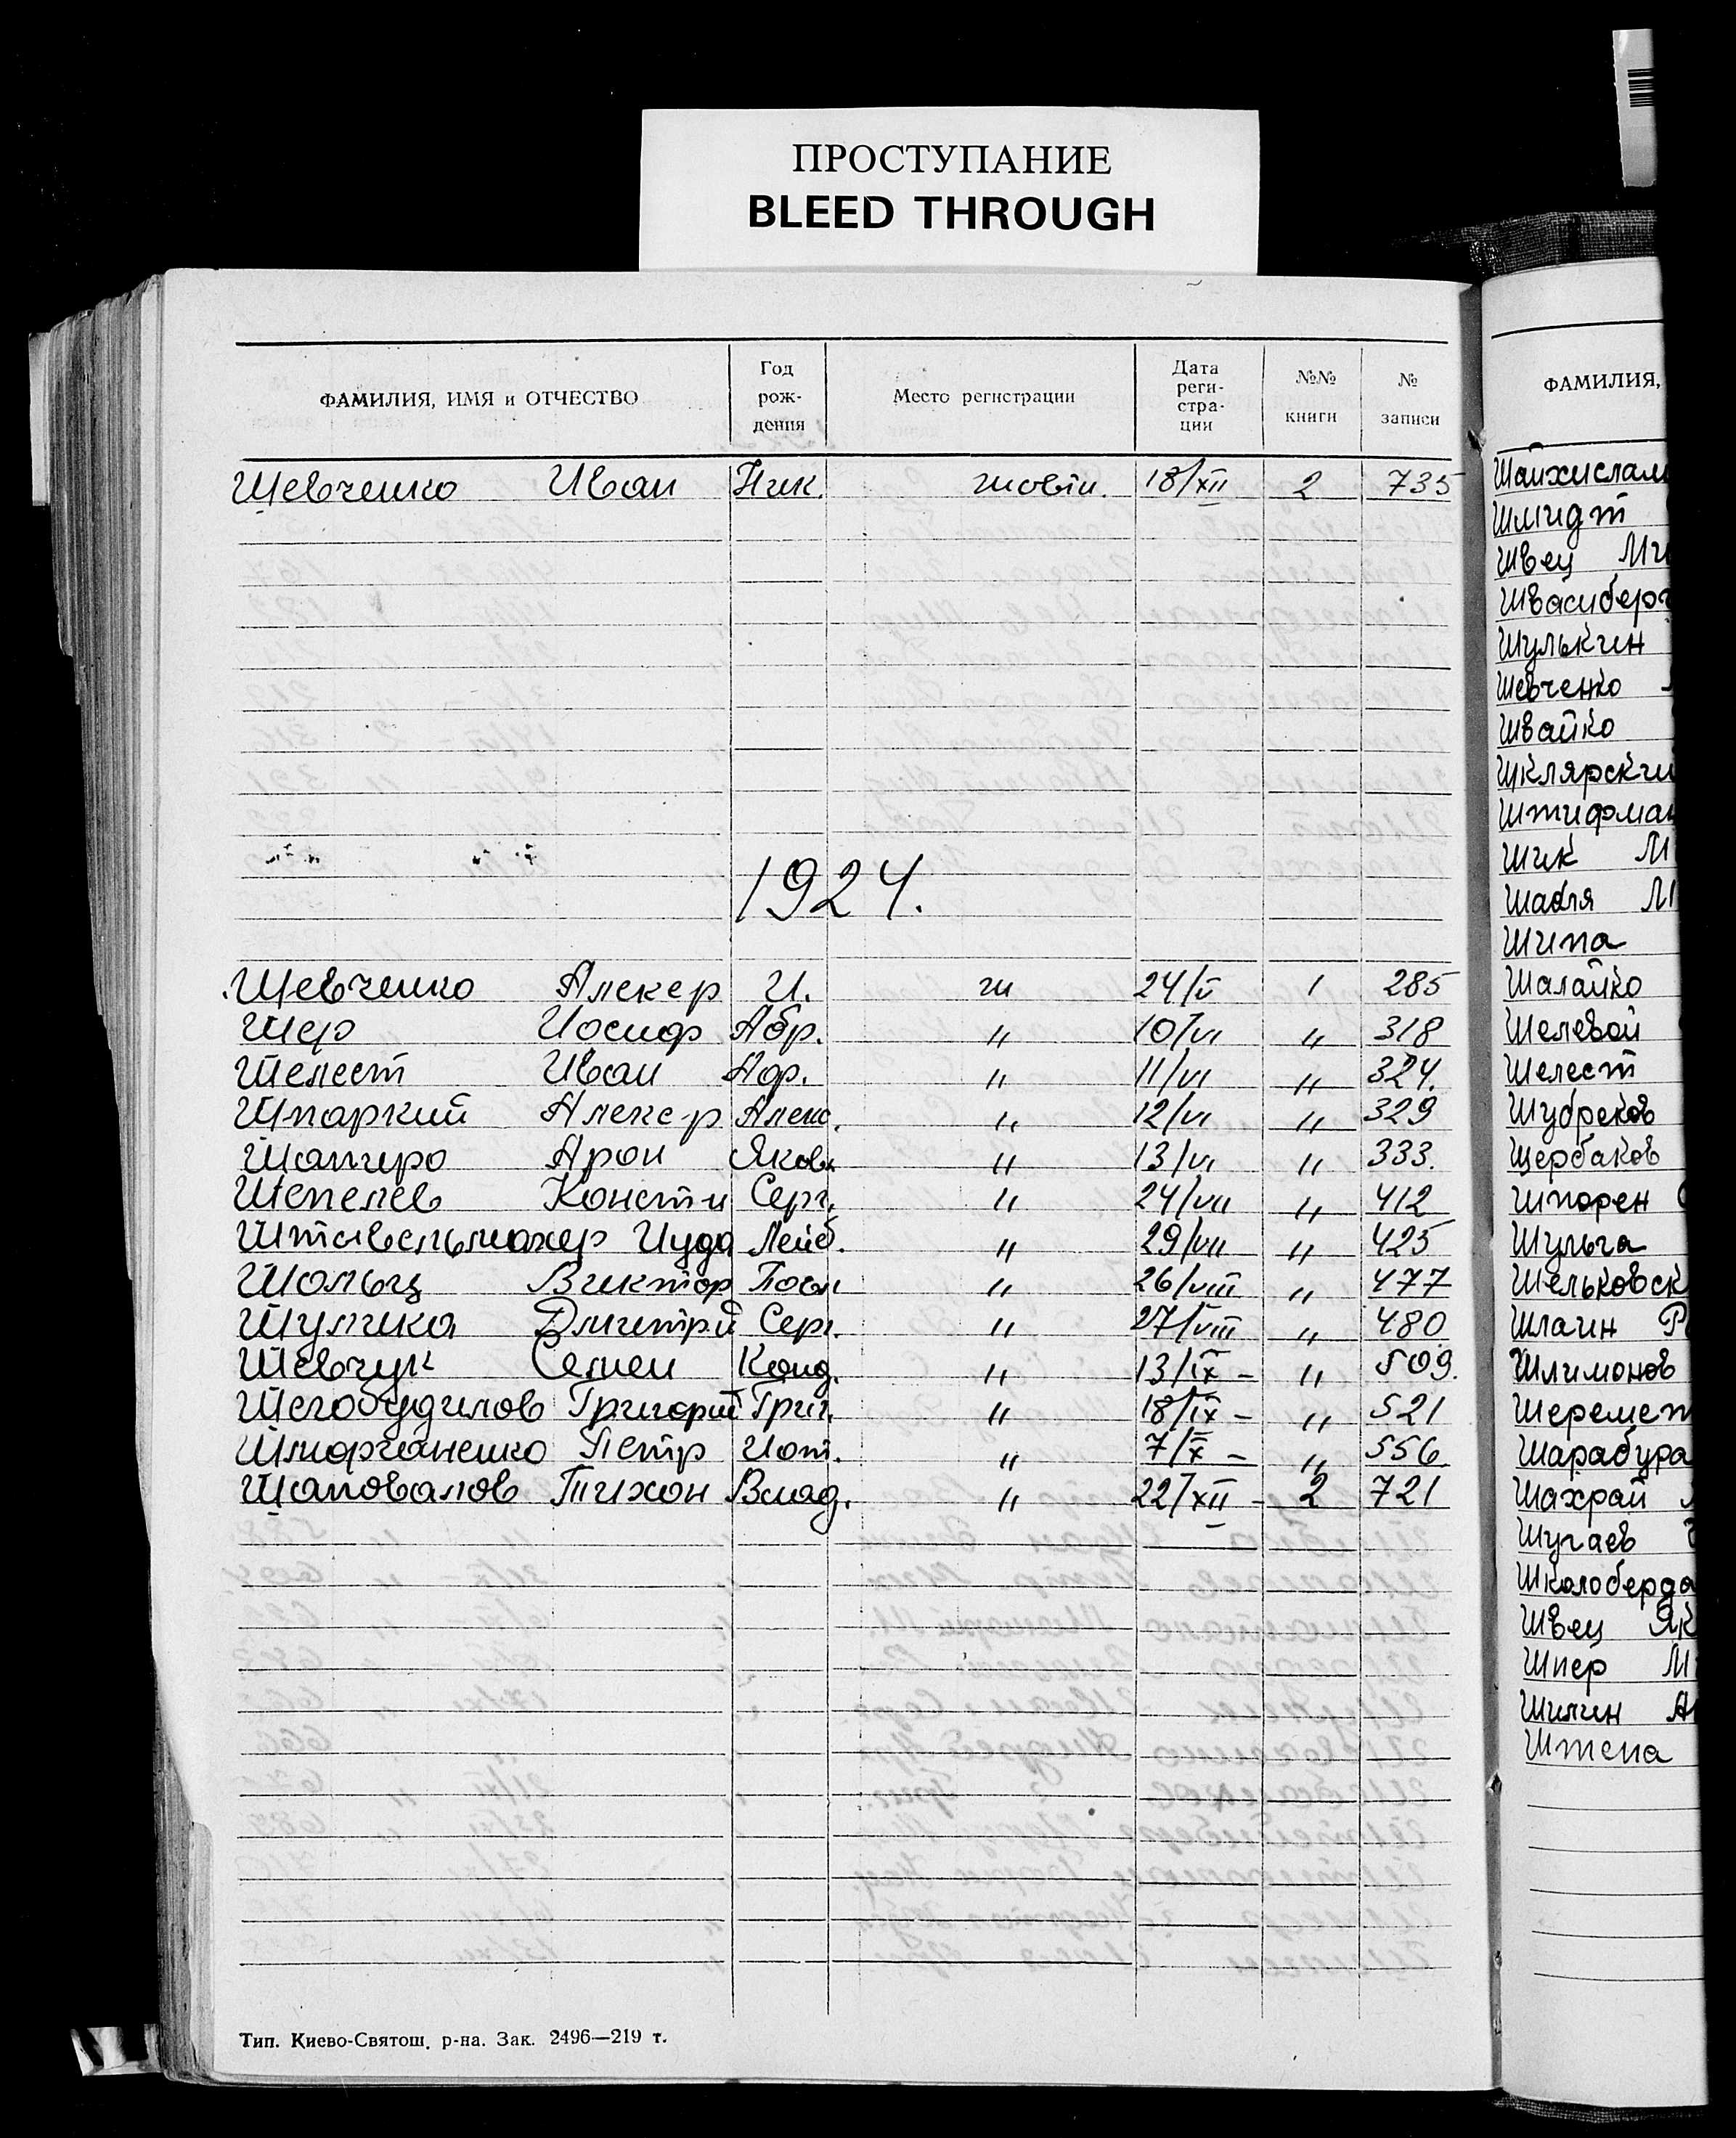 ПРОСТУПАНИЕ
BLEED THROUGH
ФАМИЛИЯ, ИМЯ и ОТЧЕСТВО Год рож- дения Место регистрации Дата реги- стра- ции №№ книги № записи
Шевченко Иван Ник. жовтн. 18/XII 2 735
1924.
Шевченко Алекср И. ж 24/V 1 285
Шер Иосиф Абр. " 10/VI " 318
Шелест Иван " 11/VI " 324.
Шпаркий Алекср Алекс. " 12/VI " 329
Шапиро Арон Яковл " 13/VI " 333.
Шепелев Консти Серг. " 24/VII " 412
Штивельмахер Иуда Лейб. " 29/VII " 425
Шольц Виктор " 26/VIII " 477
Шулика Дмитрий Серг. " 27/VIII " 480
Шевчук Семен Конд. " 13/IX - " 509.
Григорий Григ. " 18/IX - " 521
Петр " 7/X - " 556
Шаповалов Тихон Влад. " 22/XII - 2 721
Тип. Киево-Святош. р-на. Зак. 2496—219 т.
ФАМИЛИЯ,
Шайхислам
Шмидт
Швец Ми
Швасиберг
Шулькин
Шевченко
Швайко
Шклярский
Штифман
Шик М
Шабля М
Шипа
Шалайко
Шелевой
Шелест
Шубреков
Щербаков
Шпорен
Шульга
Шельковск
Шлаин Р
Шлимонов
Шеремет
Шарабура
Шахрай
Шугаев
Школоберда
Швец Як
Шпер М
Шилин А
Штепа